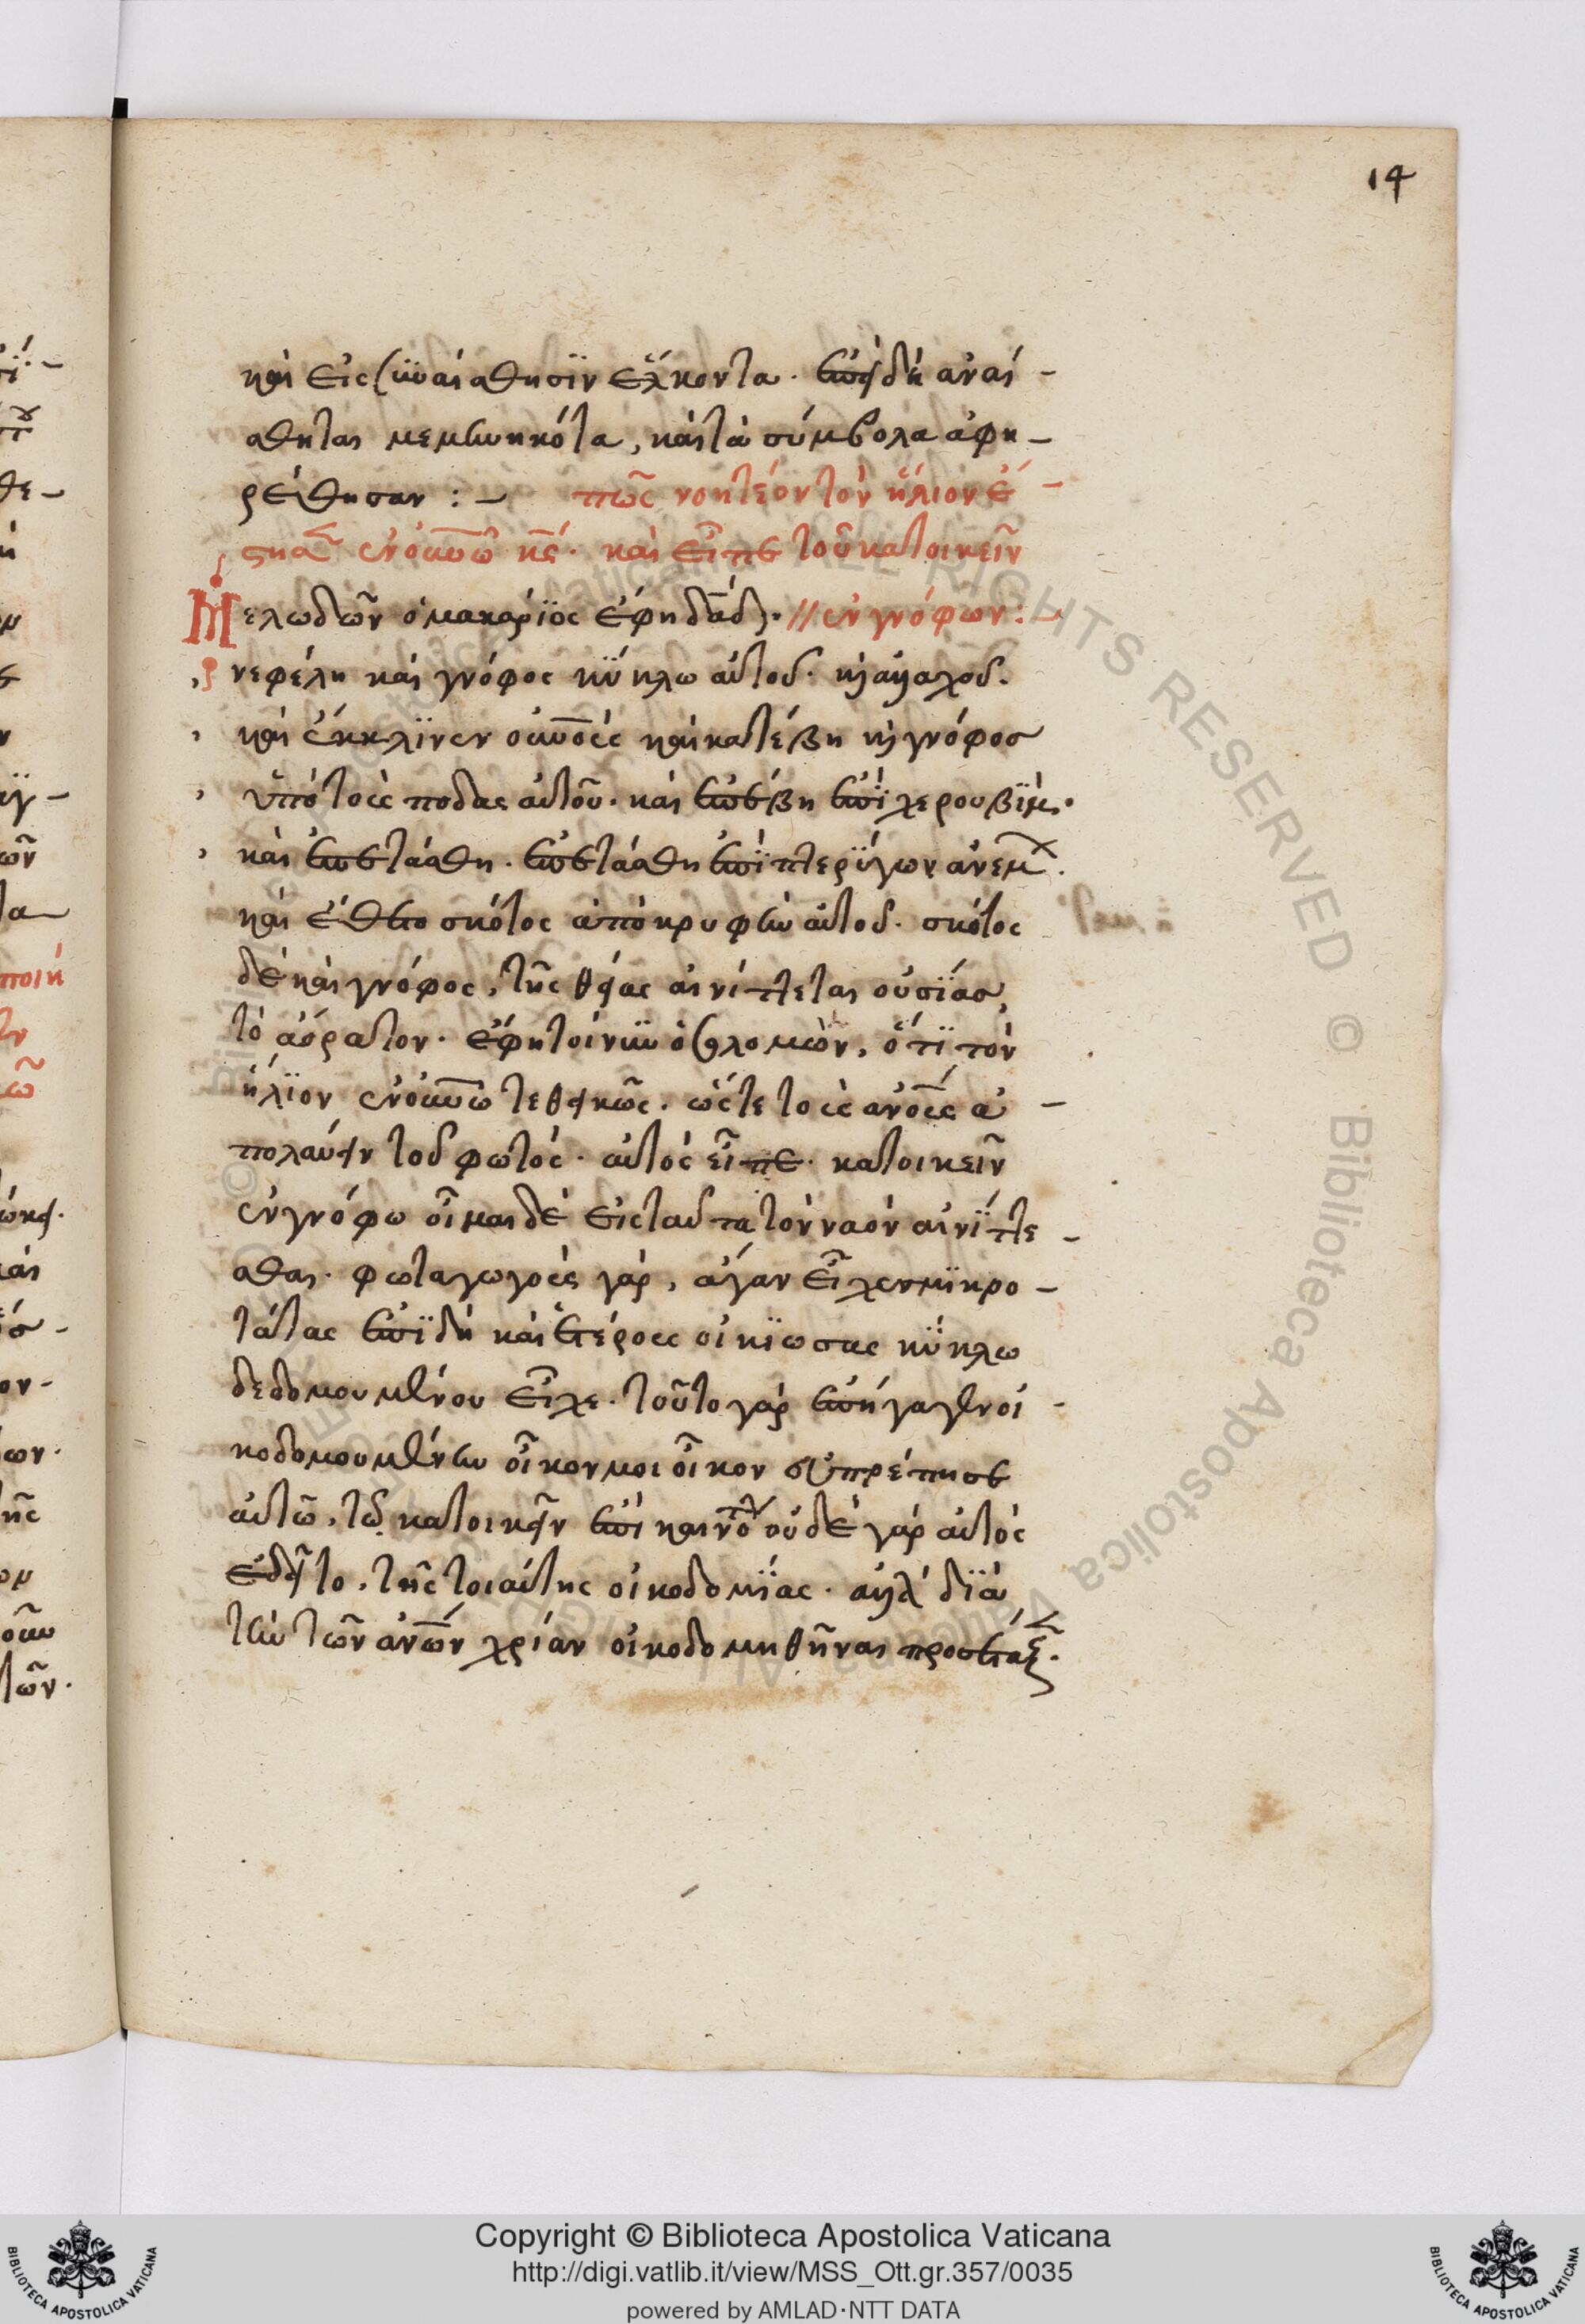 14
καὶ εἰς συναίσθησϊν ἕλκοντα. ἐπεὶ δὲ ἀναί -
σθητα μεμενηκότα, καὶ τὰ σύμβολα ἀφη -
ρέθησαν : - πῶς νοητέον τὸν ἥλιον ἔ -
στησ ἐν οὐνῶ κς. καὶ εἶπε τοῦ κατοικεῖν
Μελωδῶν ὁ μακάριος ἔφη δαδ. // ἐν γνόφων : -
νεφέλη καὶ γνόφος κύκλω αὐτοῦ. κὶ ἀλλαχοῦ.
καὶ ἔκκλϊνεν οὐνοὺς καὶ κατέβη κὶ γνόφοσ
ὑπὸ τοὺς ποδας αὐτοῦ. καὶ ἐπέβη ἐπῒ χερουβῒμ.
καὶ ἐπετάσθη. ἐπετάσθη ἐπῒ πτερΰγων ἀνεμ.
καὶ ἔθετο σκότος ἀποκρυφὴν αὐτοῦ. σκότος
δὲ καὶ γνόφος, τῆς θείας αἰνίττεται οὐσΐασ,
τὸ ἀόρατον. ἔφη τοίνυν ὁ σολομὼν, ὅτϊ τὸν
ἥλϊον ἐν οὐνῶ τεθεικῶς. ὥστε τοὺς ἀνους ἀ -
πολαύειν τοῦ φωτός. αὐτὸς εἶπε. κατοικεῖν
ἐν γνόφω οἶμαι δὲ εἰς ταῦτα τὸν ναὸν αἰνίττε -
σθαι. φωταγωγοὺς γὰρ, ἄγαν εἶχε σμϊκρο -
τάτας ἐπῒ δὴ καὶ ἑτέροις οἰκϊωσας κΰκλω
δεδομουμένου εἶχε. τοῦτο γὰρ ἐπήγαγεν οἰ -
κοδομουμένην οἶκον μοι οἶκον εὐπρέπησε
αὐτῶ, τοῦ κατοικεῖν ἐπὶ καινο οὐδὲ γὰρ αὐτὸς
ἐδεῖτο, τῆς τοιαύτης οἰκοδομΐας. ἀλλ' δϊὰ
τὴν τῶν ἀνων χρίαν οἰκοδομηθῆναι προσέταξ.
Copyright © Biblioteca Apostolica Vaticana
http://digi.vatlib.it/view/MSS_Ott.gr.357/0035
powered by AMLAD·NTT DATA